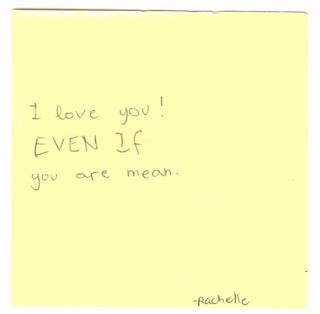 I love you!
EVEN If
you are mean.
-Rachelle